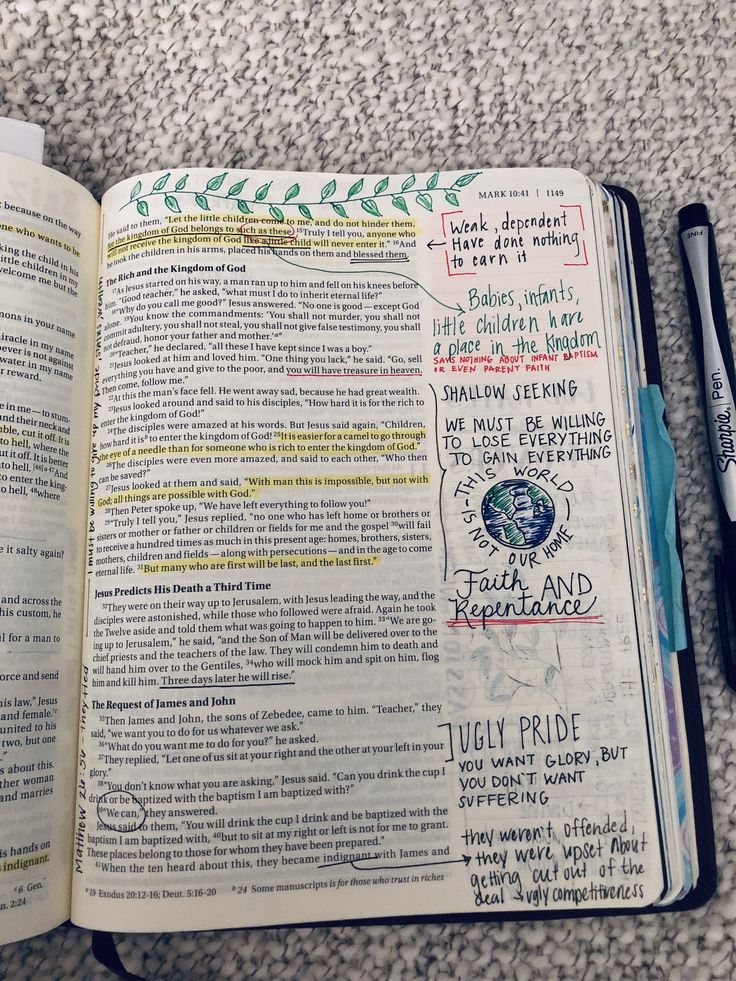 because on the way
one who wants to be
king the child in his
little children in my
welcome me but the
mons in your name
miracle in my name
oever is not against
water in my name
r reward.
e in me—to stum-
their neck and
ble, cut it off. It is
to hell, where the
ut it off. It is better
to hell, where
e it salty again?
and across the
his custom, he
ul for a man to
orce and send
is law,” Jesus
and female.’
united to his
two, but one
s about this.
ther woman
and marries
his hands on
indignant.
6 Gen.
n. 2:24
MARK 10:41 | 1149
He said to them, “Let the little children come to me, and do not hinder them,
for the kingdom of God belongs to such as these. 15Truly I tell you, anyone who
will not receive the kingdom of God like a little child will never enter it.” 16And
he took the children in his arms, placed his hands on them and blessed them.
The Rich and the Kingdom of God
17As Jesus started on his way, a man ran up to him and fell on his knees before
him. “Good teacher,” he asked, “what must I do to inherit eternal life?”
18“Why do you call me good?” Jesus answered. “No one is good—except God
alone. 19You know the commandments: ‘You shall not murder, you shall not
commit adultery, you shall not steal, you shall not give false testimony, you shall
not defraud, honor your father and mother.’a”
20“Teacher,” he declared, “all these I have kept since I was a boy.”
21Jesus looked at him and loved him. “One thing you lack,” he said. “Go, sell
everything you have and give to the poor, and you will have treasure in heaven.
Then come, follow me.”
22At this the man’s face fell. He went away sad, because he had great wealth.
23Jesus looked around and said to his disciples, “How hard it is for the rich to
enter the kingdom of God!”
24The disciples were amazed at his words. But Jesus said again, “Children,
how hard it isb to enter the kingdom of God! 25It is easier for a camel to go through
the eye of a needle than for someone who is rich to enter the kingdom of God.”
26The disciples were even more amazed, and said to each other, “Who then
can be saved?”
27Jesus looked at them and said, “With man this is impossible, but not with
God; all things are possible with God.”
28Then Peter spoke up, “We have left everything to follow you!”
29“Truly I tell you,” Jesus replied, “no one who has left home or brothers or
sisters or mother or father or children or fields for me and the gospel 30will fail
to receive a hundred times as much in this present age: homes, brothers, sisters,
mothers, children and fields—along with persecutions—and in the age to come
eternal life. 31But many who are first will be last, and the last first.”
Jesus Predicts His Death a Third Time
32They were on their way up to Jerusalem, with Jesus leading the way, and the
disciples were astonished, while those who followed were afraid. Again he took
the Twelve aside and told them what was going to happen to him. 33“We are go-
ing up to Jerusalem,” he said, “and the Son of Man will be delivered over to the
chief priests and the teachers of the law. They will condemn him to death and
will hand him over to the Gentiles, 34who will mock him and spit on him, flog
him and kill him. Three days later he will rise.”
The Request of James and John
35Then James and John, the sons of Zebedee, came to him. “Teacher,” they
said, “we want you to do for us whatever we ask.”
36“What do you want me to do for you?” he asked.
37They replied, “Let one of us sit at your right and the other at your left in your
glory.”
38“You don’t know what you are asking,” Jesus said. “Can you drink the cup I
drink or be baptized with the baptism I am baptized with?”
39“We can,” they answered.
Jesus said to them, “You will drink the cup I drink and be baptized with the
baptism I am baptized with, 40but to sit at my right or left is not for me to grant.
These places belong to those for whom they have been prepared.”
41When the ten heard about this, they became indignant with James and
a 19 Exodus 20:12-16; Deut. 5:16-20   b 24 Some manuscripts is for those who trust in riches
I must be willing to give up my pride
Matthew 26:56 - They fled
Weak, dependent
Have done nothing
to earn it
Babies, infants,
little children have
a place in the Kingdom
SAYS NOTHING ABOUT INFANT BAPTISM
OR EVEN PARENT FAITH
SHALLOW SEEKING
WE MUST BE WILLING
TO LOSE EVERYTHING
TO GAIN EVERYTHING
THIS WORLD
IS NOT OUR HOME
Faith AND
Repentance
UGLY PRIDE
YOU WANT GLORY, BUT
YOU DON'T WANT
SUFFERING
they weren't offended,
they were upset about
getting cut out of the
deal → ugly competitiveness
FINE
Sharpie. Pen.